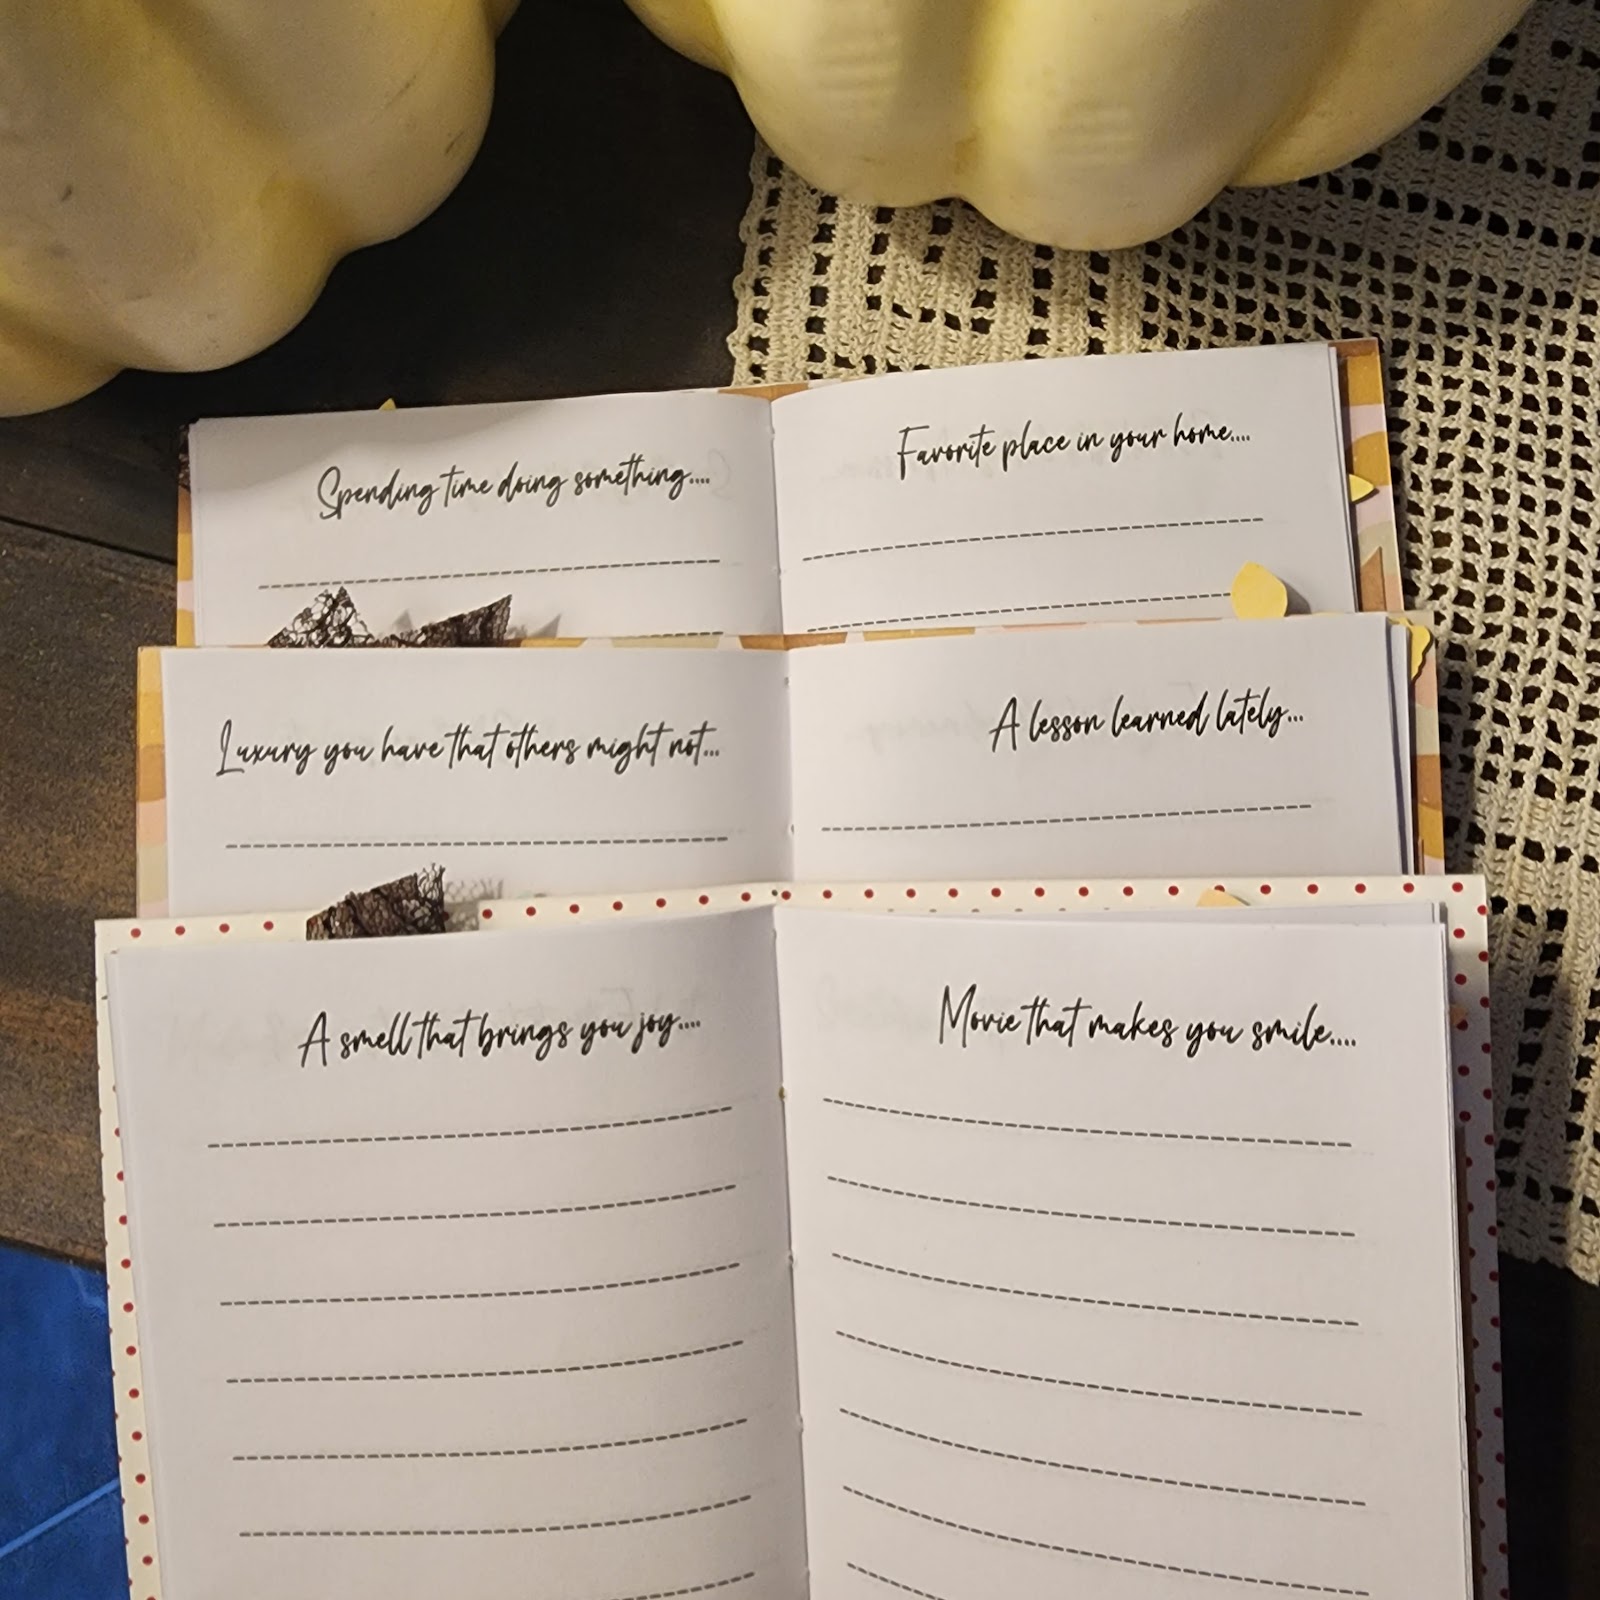 Spending time doing something....
Favorite place in your home....
Luxury you have that others might not...
A lesson learned lately...
A smell that brings you joy....
Movie that makes you smile....